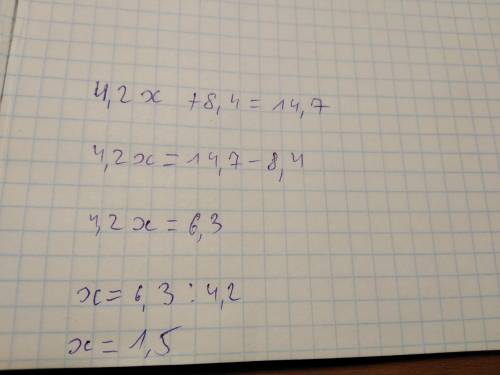 4,2x +8,4=14,7
4,2x=14,7-8,4
4,2x=6,3
x=6,3:4,2
x=1,5